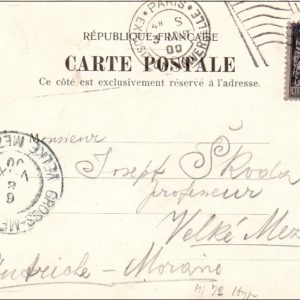 PARIS
EXPOSITION UNIVERSELLE
5
00
RÉPUBLIQUE FRANÇAISE
CARTE POSTALE
Ce côté est exclusivement réservé à l'adresse.
Monsieur
Joseph Škoda
professeur
Velké Mez
Autriche - Moravie
GROSS-ME
VELKÉ MEZ